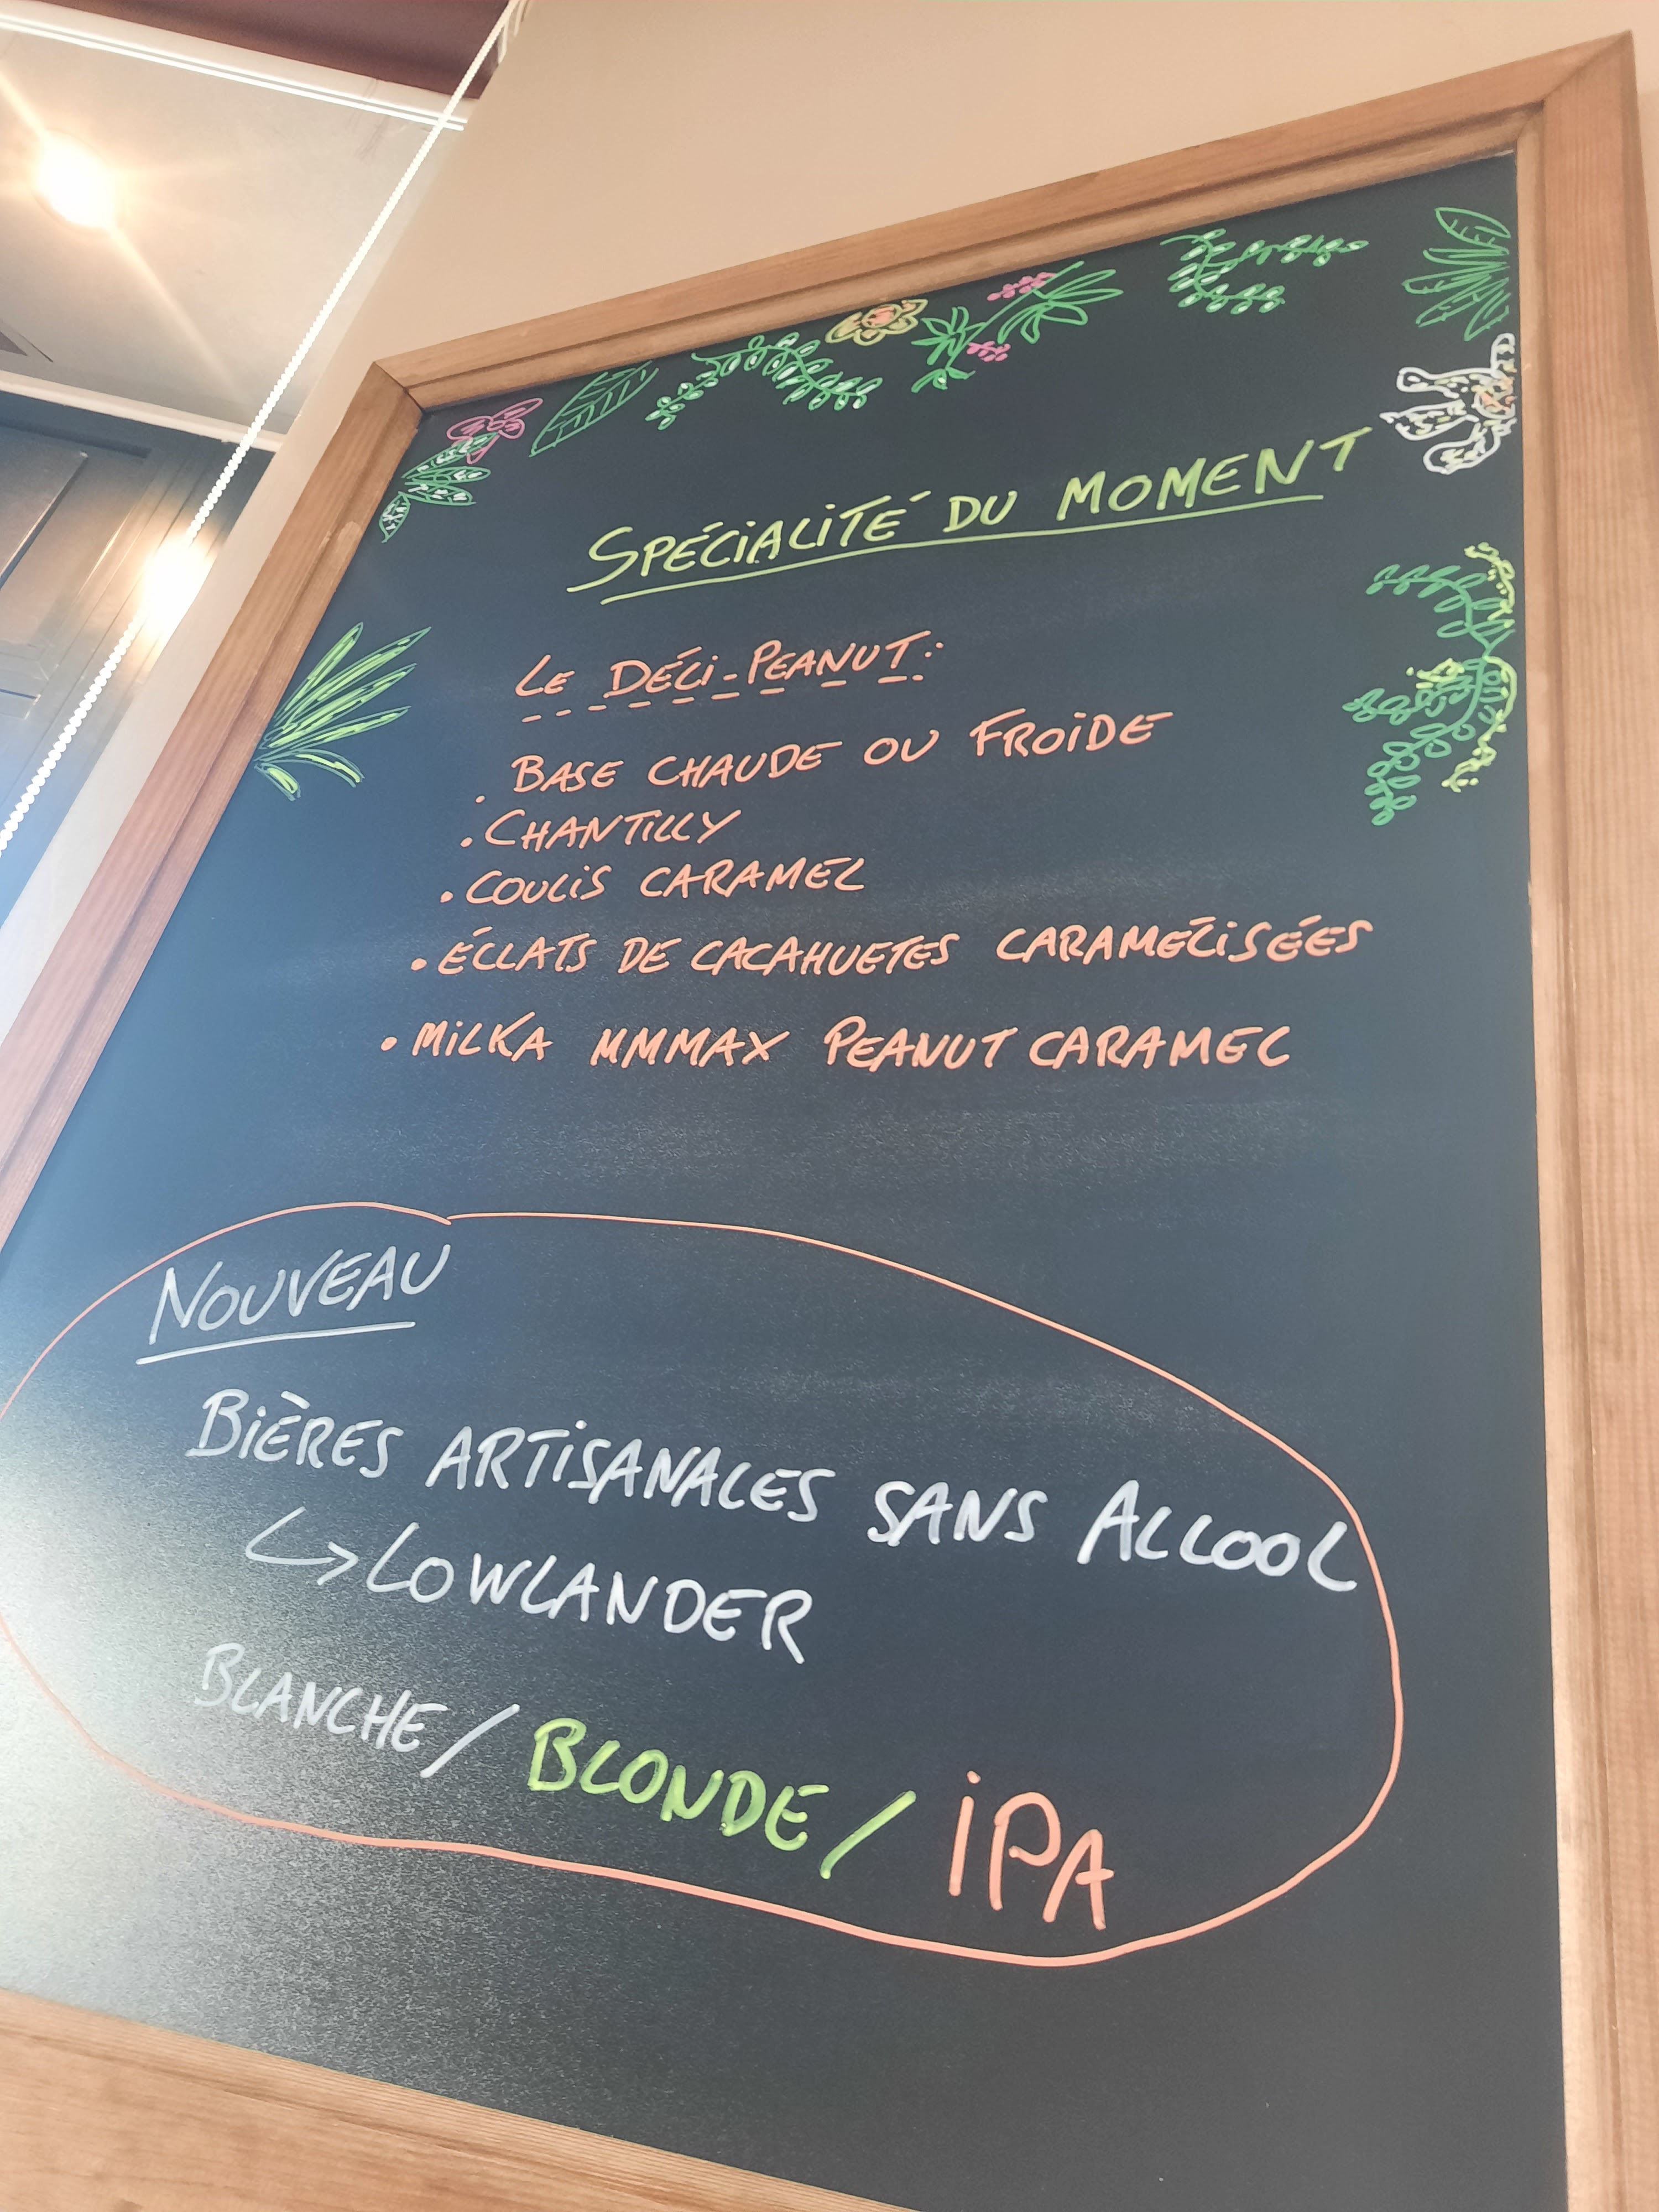 SPÉCIALITÉ DU MOMENT
LE DÉLI-PEANUT:
. BASE CHAUDE OU FROIDE
. CHANTILLY
. COULIS CARAMEL
. ÉCLATS DE CACAHUETES CARAMÉLISÉES
. MILKA MMMAX PEANUT CARAMEL
NOUVEAU
BIÈRES ARTISANALES SANS ALCOOL
↳ LOWLANDER
BLANCHE / BLONDE / IPA